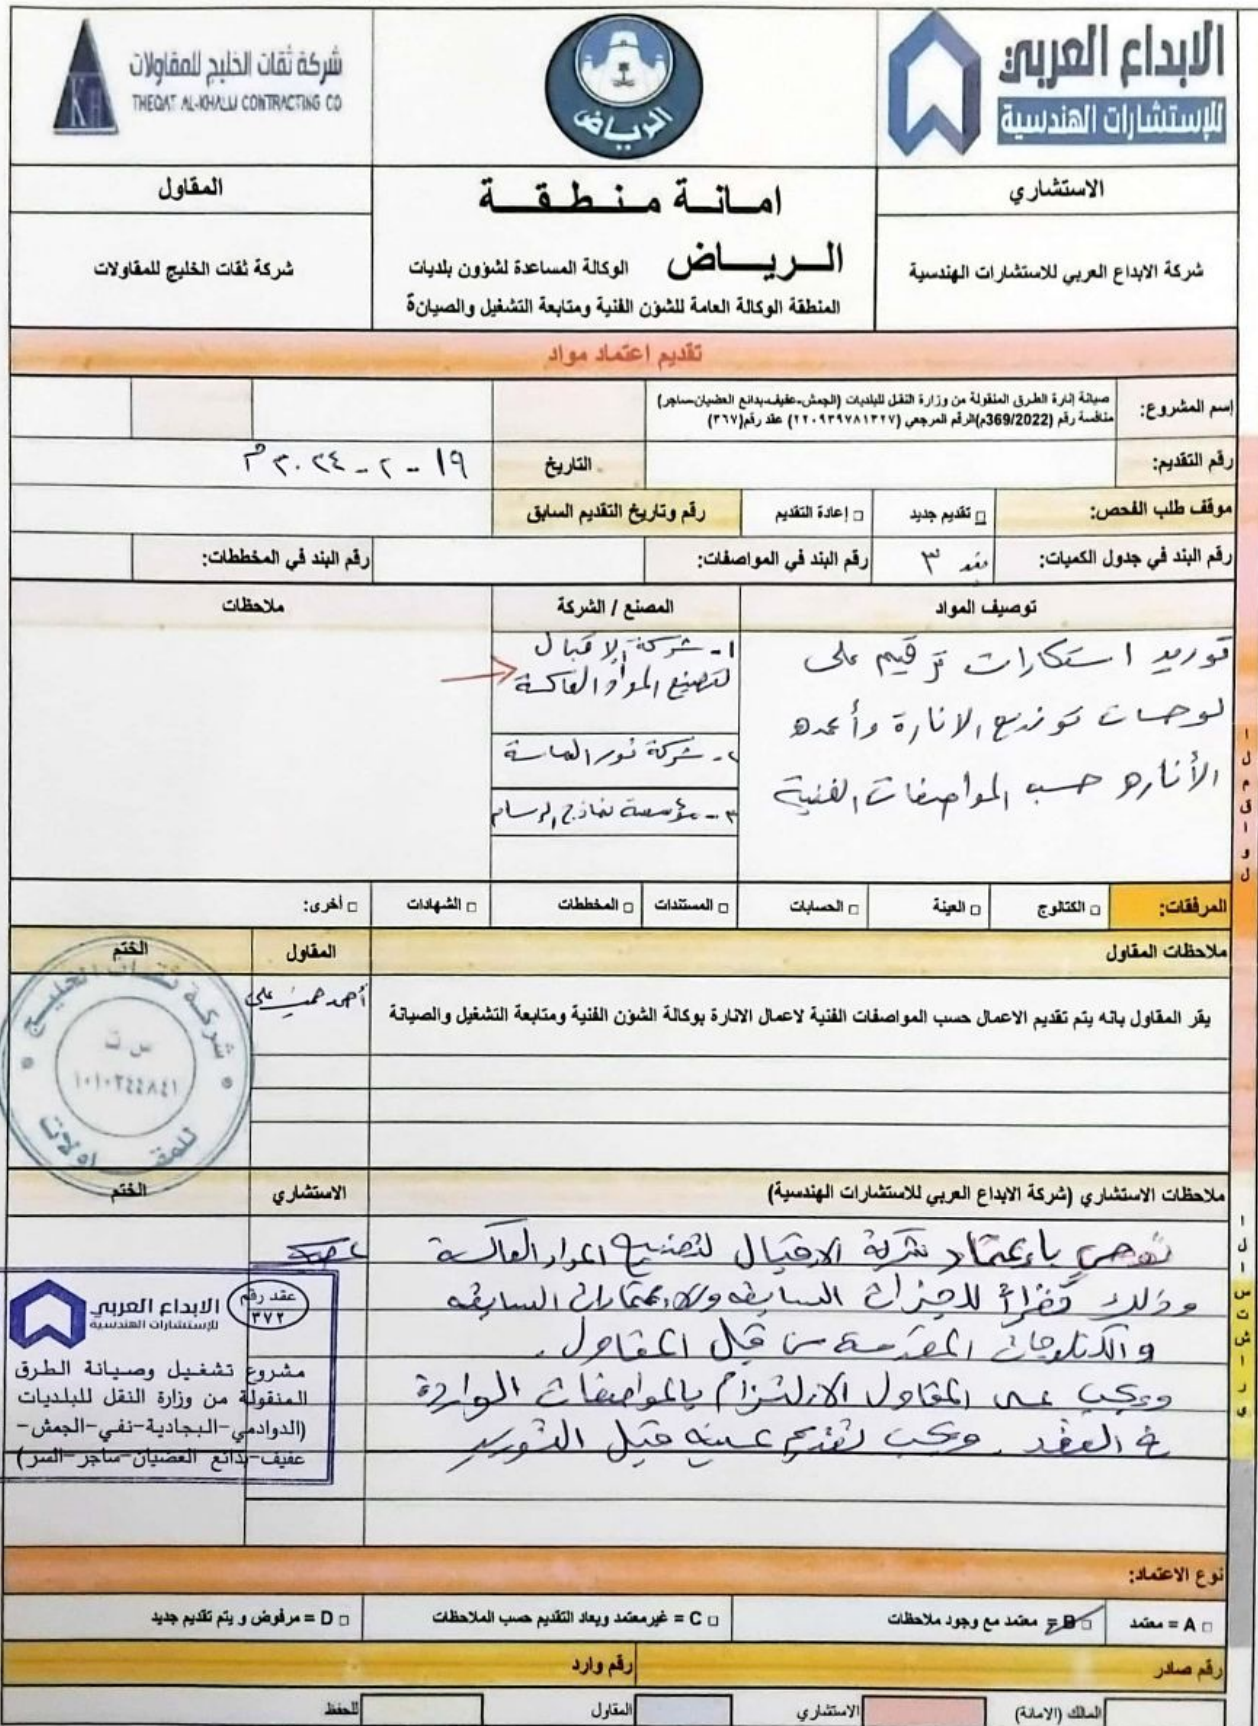 شركة ثقات الخليج للمقاولات
THEQAT AL-KHALIJ CONTRACTING CO
KH
الرياض
الابداع العربي
للإستشارات الهندسية
الاستشاري
امانة منطقة
المقاول
شركة الابداع العربي للاستشارات الهندسية
الرياض الوكالة المساعدة لشؤون بلديات
المنطقة الوكالة العامة للشؤن الفنية ومتابعة التشغيل والصيانة
شركة ثقات الخليج للمقاولات
تقديم اعتماد مواد
إسم المشروع:
صيانة إنارة الطرق المنقولة من وزارة النقل للبلديات (الجمش-عفيف-بدائع العضيان-ساجر)
منافسة رقم (369/2022م)الرقم المرجعي (٢٢٠٩٣٩٧٨١٣٢٧) عقد رقم(٣٦٧)
رقم التقديم:
التاريخ
١٩ - ٢ - ٢٠٢٤ م
موقف طلب الفحص:
□ تقديم جديد
□ إعادة التقديم
رقم وتاريخ التقديم السابق
رقم البند في جدول الكميات:
بند ٣
رقم البند في المواصفات:
رقم البند في المخططات:
توصيف المواد
المصنع / الشركة
ملاحظات
توريد استكارات ترقيم على
لوحات توزيع الانارة وأعمده
الأناره حسب المواصفات الفنية
١- شركة الإقبال
لتصنيع المواد العاكسة
٢- شركة نور الماسة
٣- مؤسسة نماذج الرسام
المرفقات:
□ الكتالوج
□ العينة
□ الحسابات
□ المستندات
□ المخططات
□ الشهادات
□ أخرى:
ملاحظات المقاول
المقاول
الختم
يقر المقاول بانه يتم تقديم الاعمال حسب المواصفات الفنية لاعمال الانارة بوكالة الشؤن الفنية ومتابعة التشغيل والصيانة
أحمد علي
شركة ثقات الخليج
س ت
١٠١٠٢٤٤٨٤١
للمقاولات
ملاحظات الاستشاري (شركة الابداع العربي للاستشارات الهندسية)
الاستشاري
الختم
نوصي باعتماد شركة الاقبال لتصنيع المواد العاكسة
وذلك نظراً للخبرات السابقه والاعتمادات السابقه
والكتلوجات المقدمة من قبل المقاول.
ويجب على المقاول الالتزام بالمواصفات الواردة
في العقد. ويجب تقديم عينه قبل التوريد
عقد رقم
٣٧٢
الابداع العربي
للإستشارات الهندسية
مشروع تشغيل وصيانة الطرق
المنقولة من وزارة النقل للبلديات
(الدوادمي-البجادية-نفي-الجمش-
عفيف-بدائع العضيان-ساجر-السر)
المقاول
الاستشاري
نوع الاعتماد:
□ A = معتمد
□ B = معتمد مع وجود ملاحظات
□ C = غيرمعتمد ويعاد التقديم حسب الملاحظات
□ D = مرفوض و يتم تقديم جديد
رقم صادر
رقم وارد
المالك (الامانة)
الاستشاري
المقاول
للحفظ